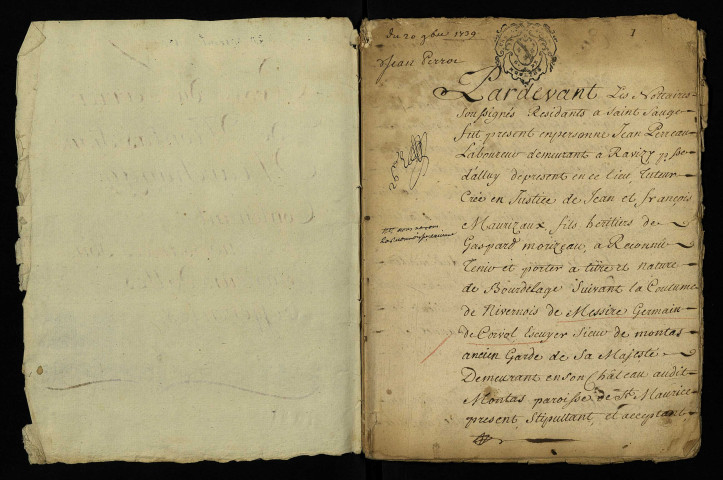 du 20 9bre 1739
1
Jean Perrot
Pardevant Les Nottaires
Soussignés Residants a Saint Sauge
fut present enpersonne Jean Perreau
Laboureur demeurant a Ravizy psse
dalluy depresent en ce lieu Tuteur
Crée en Justice de Jean et françois
Maurizaux fils heritiers de
Gaspard morizeau, a Reconnu
Tenir et porter a titre et nature
de Bourdelage Suivant la Coutume
de Nivernois de Messire Germain
de Corvol Escuyer Sieur de montas
ancien Garde de Sa Majesté
Demeurant enson Château audit
Montas paroisse de St. Maurice
present, Stipullant, et acceptant